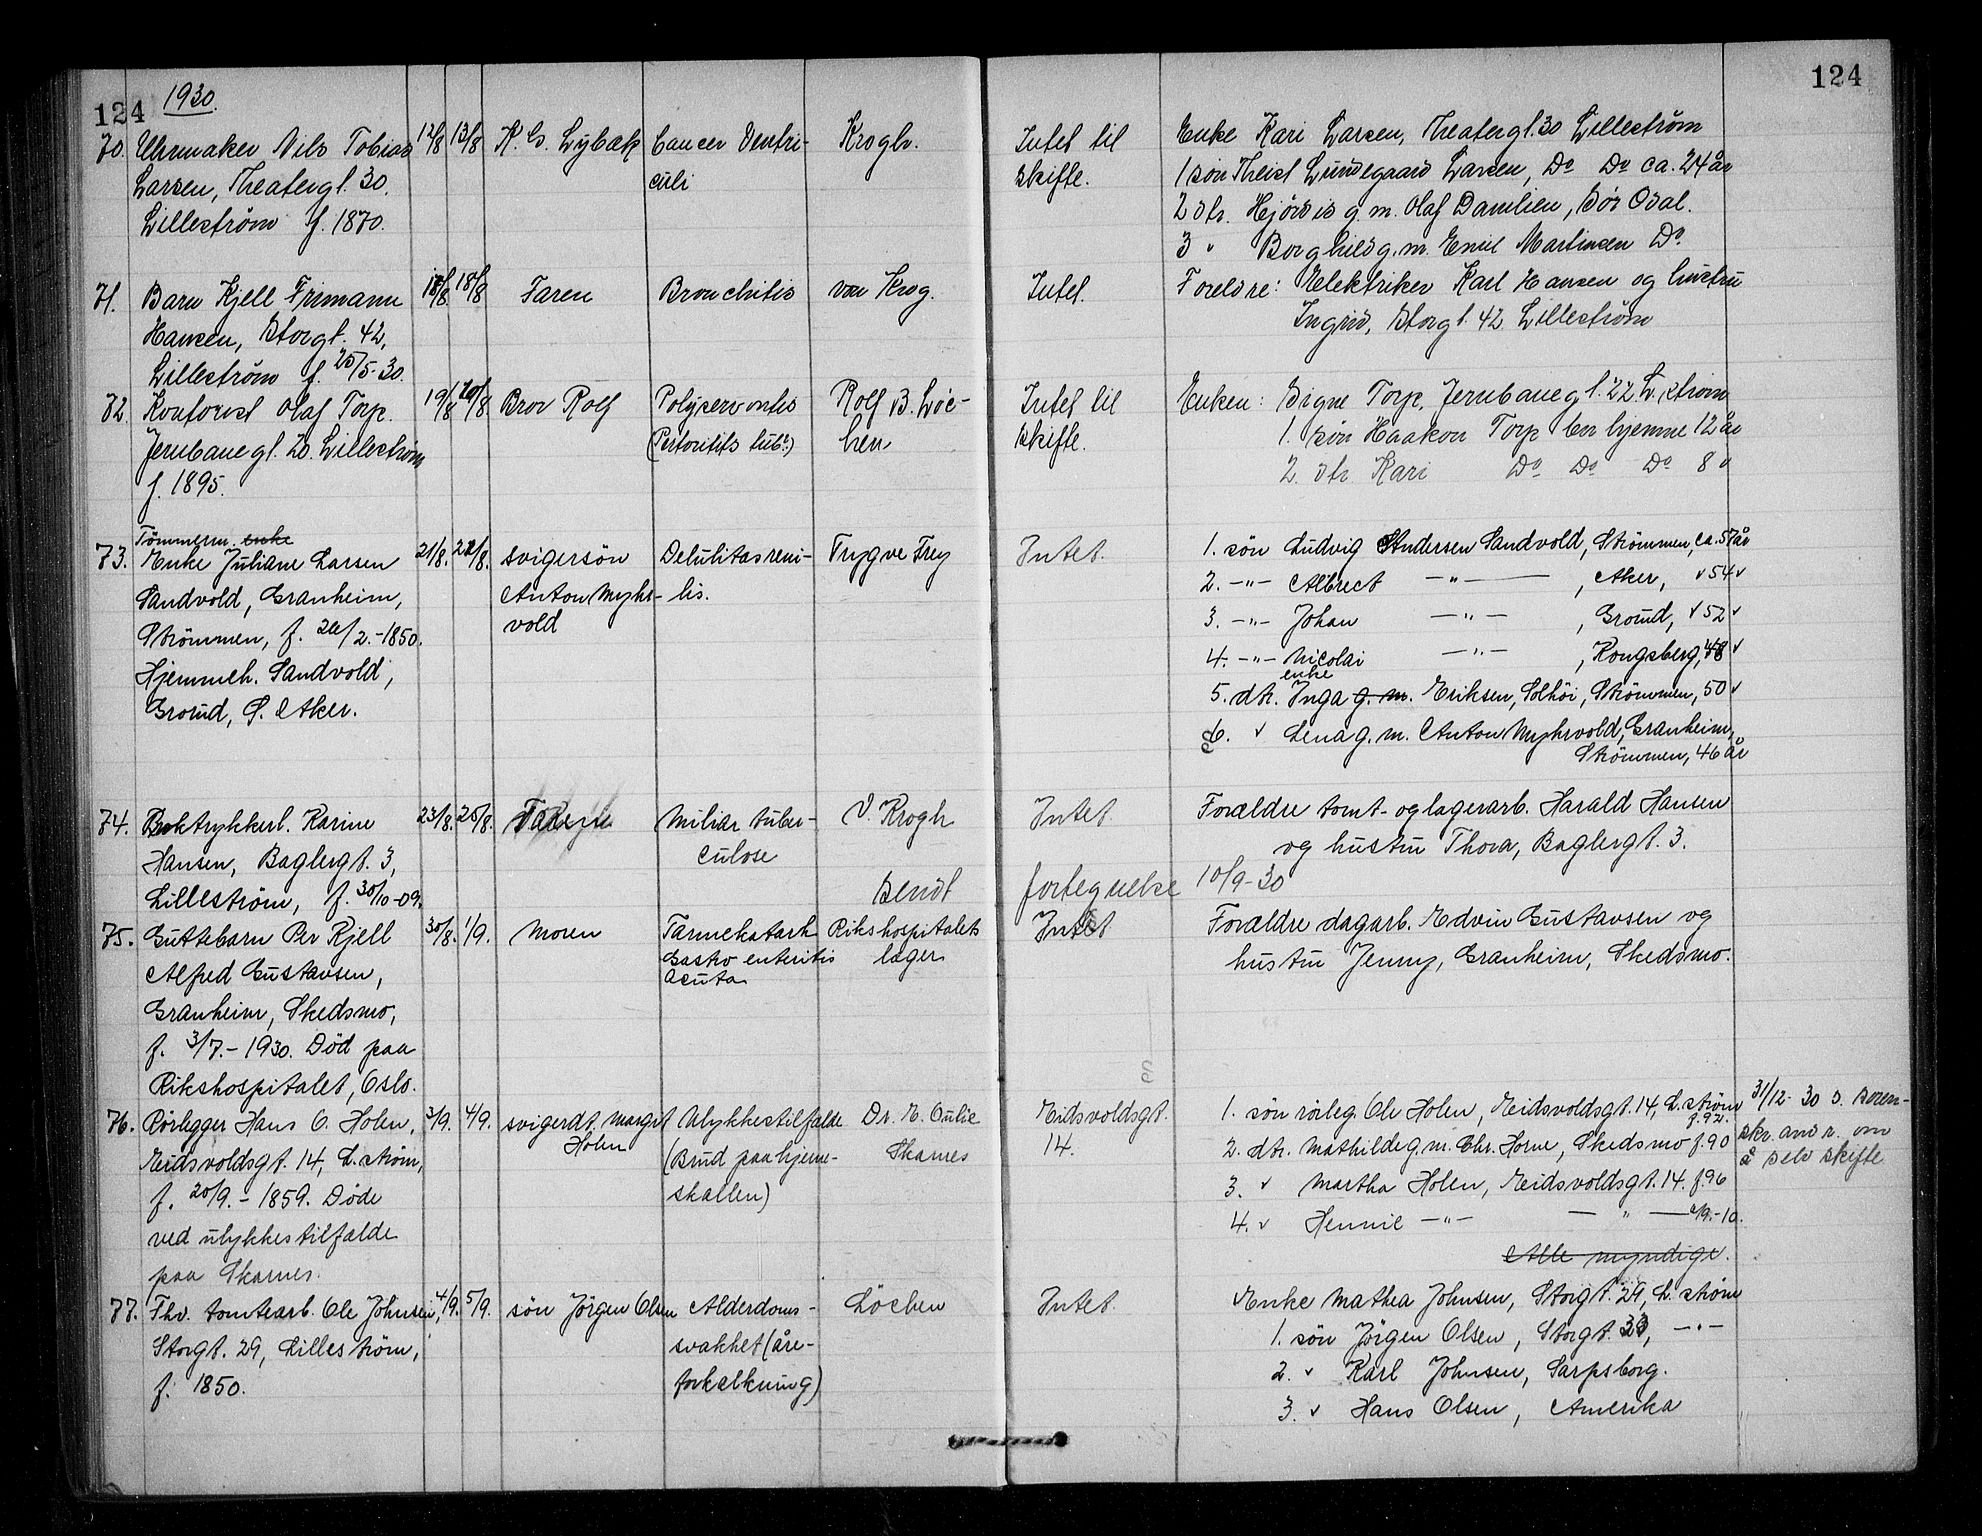 124 1930. 124
70. Uhrmaker Nils Tobias 12/8 13/8 K. G. Lybæk Cancer Ventri- Krogh. Intet til Enke Kari Larsen, Theatergt. 30 Lillestrøm
Larsen, Theatergt. 30. culi skifte. 1 søn Theist Lundegaard Larsen, Do Do ca. 24 år
Lillestrøm f. 1870. 2 dtr. Hjørdis g. m. Olaf Danilien, Sør Odal.
3 " Borghild g. m. Emil Martinsen Do.
71. Barn Kjell Frimann 18/8 18/8 Faren Bronchitis von Krog. Intet. Foreldre: Elektriker Karl Hansen og hustru
Hansen, Storgt. 42, Ingrid, Storgt. 42 Lillestrøm
Lillestrøm f. 25/5-30.
72. Kontorist Olaf Torp. 19/8 20/8 Bror Rolf Rolf B. Løc- Intet til Enken: Signe Torp, Jernbanegt. 22 L.strøm
Jernbanegt. 22. Lillestrøm hen skifte. 1. søn Haakon Torp bor hjemme 12 år
f. 1895. 2. dtr Kari Do Do Do 8 "
Tömmerm. enke
73. Enke Juliane Larsen 21/8. 22/8. svigersön Debilitas seni- Trygve Frey Intet. 1. sön Ludvig Andersen Sandvold, Strömmen, ca. 57 år
Sandvold, Granheim, Anton Myhr- lis. 2. -"- Albrect -"- , Aker, " 54 "
Strömmen, f. 26/2.-1850. vold 3. -"- Johan -"- , Grorud, " 52 "
Hjemmeh. Sandvold, 4. -"- Nicolai -"- , Kongsberg, 48 "
enke
Grorud, Ö. Aker. 5. dtr. Inga g. m. Eriksen, Solhöi, Strömmen, 50 "
6. " Lena g. m. Anton Myhrvold, Granheim,
Strömmen, 46 år
74. Boktrykkerl. Karine 23/8. 25/8. Faren Miliar tuber- V. Krogh Intet. Forældre tomt- og lagerarb. Harald Hansen
Hansen, Baglergt. 3, culose og hustru Thora, Baglergt. 3.
Lillestrøm, f. 30/10-09. Sendt fortegnelse 10/9-30
75. Guttebarn Per Kjell 30/8. 1/9. Moren Tarmekatarh Rikshospitalets Intet Forældre dagarb. Edvin Gustavsen og
Alfred Gustavsen, Gastro enteritis læger hustru Jenny, Granheim, Skedsmo.
Granheim, Skedsmo, acuta
f. 3/7.-1930. Död paa
Rikshospitalet, Oslo.
76. Rörlegger Hans O. Holen, 3/9. 4/9. svigerdt. Margit Ulykkestilfælde Dr. E. Eidsvoldsgt. 1. sön rörleg. Ole Holen, Eidsvoldsgt. 14, L.ström f. 92. 31/12-30 s. soren-
Eidsvoldsgt. 14, L.ström, Holen (Brud paa hjerne- Skarnes 14. 2. dtr. Mathilde g. m. Chr. Horne, Skedsmo f. 90 skr. andr. om
f. 20/9.-1859. Döde skallen) 3. " Martha Holen, Eidsvoldsgt. 14. f. 96 å selv skifte
ved ulykkestilfælde 4. " Hennie -"- - " - /9.-10.
paa Skarnes. Alle myndige.
77. Fhv. tomtearb. Ole Johnsen, 4/9. 5/9. sön Jörgen Olsen Alderdoms- Löchen Intet. Enke Mathea Johnsen, Storgt. 29, L.ström
Storgt. 29, Lilleström, svakhet (åre- 1. sön Jörgen Olsen, Storgt. 33, -"-
f. 1850. forkalkning) 2. " Karl Johnsen, Sarpsborg.
3. " Hans Olsen, Amerika